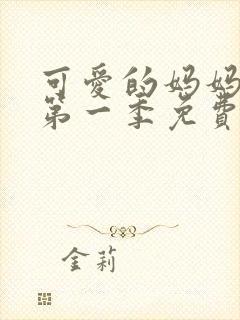 可爱的妈妈
第一季免费
金莉